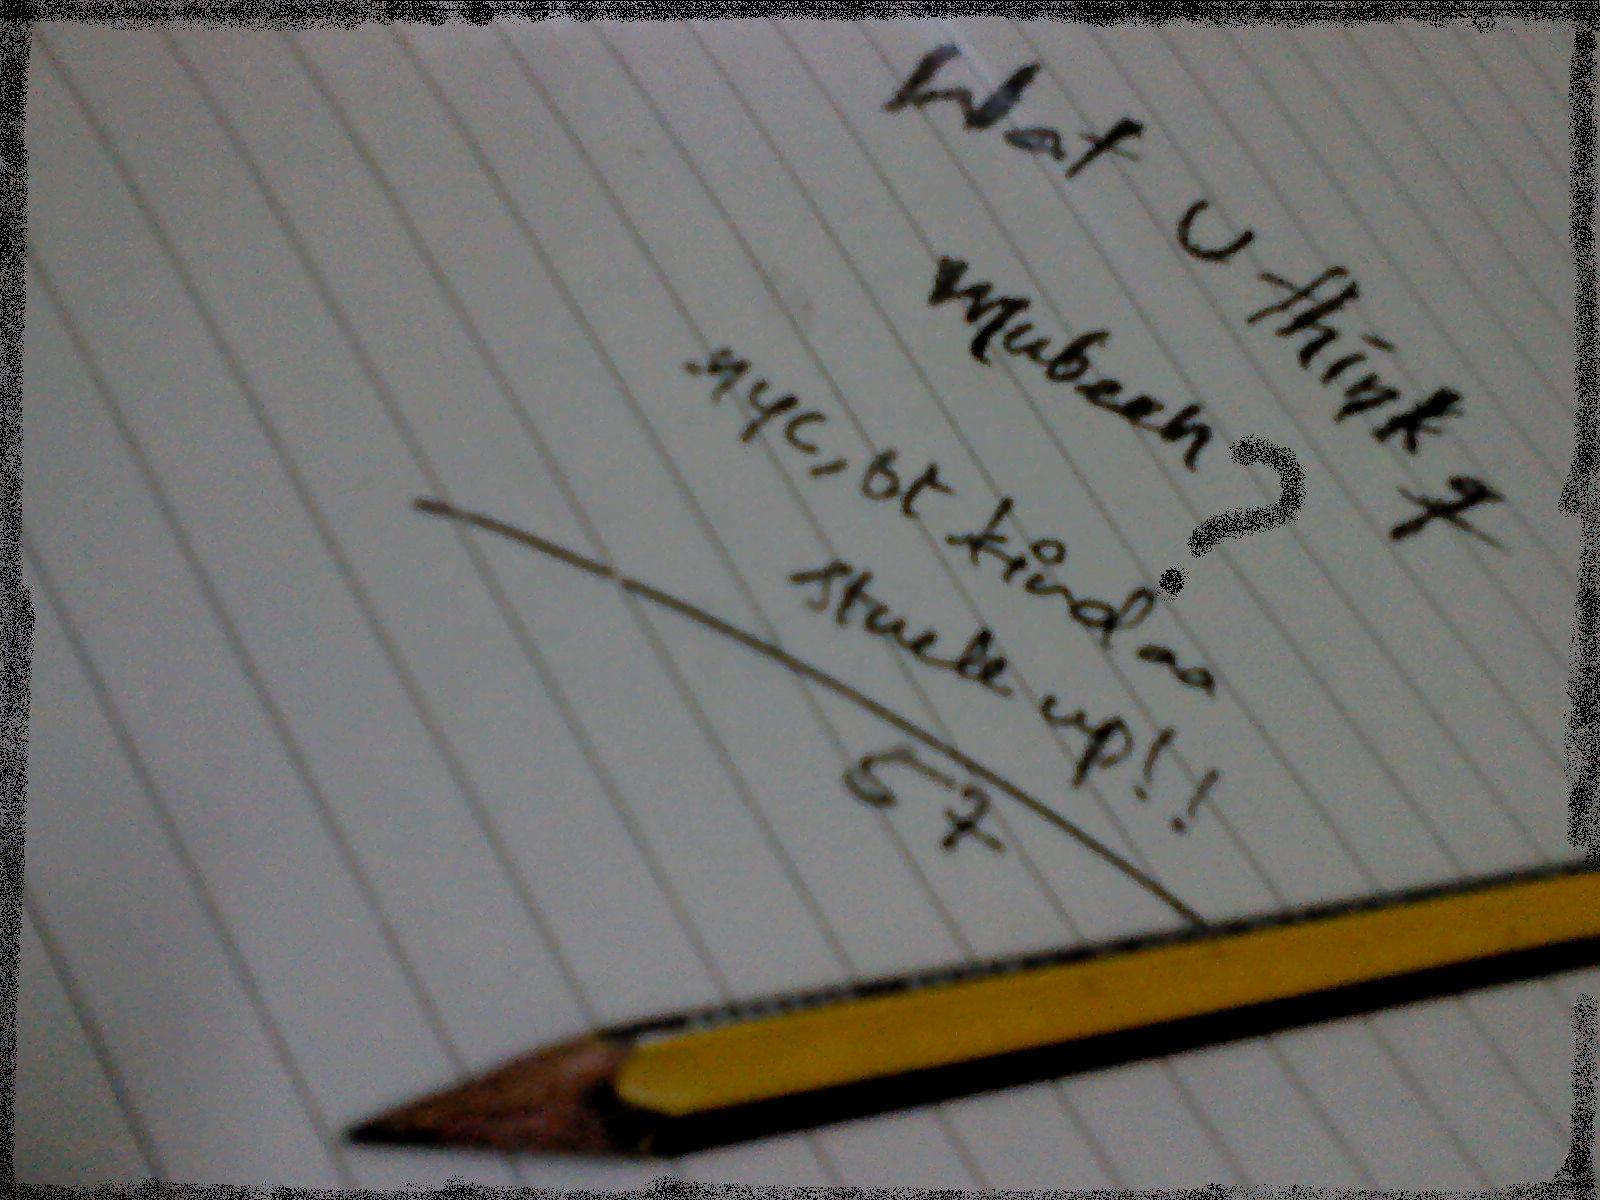 What U think of
Mubeen?
nyc, bt kindaa
stuck up!!
57